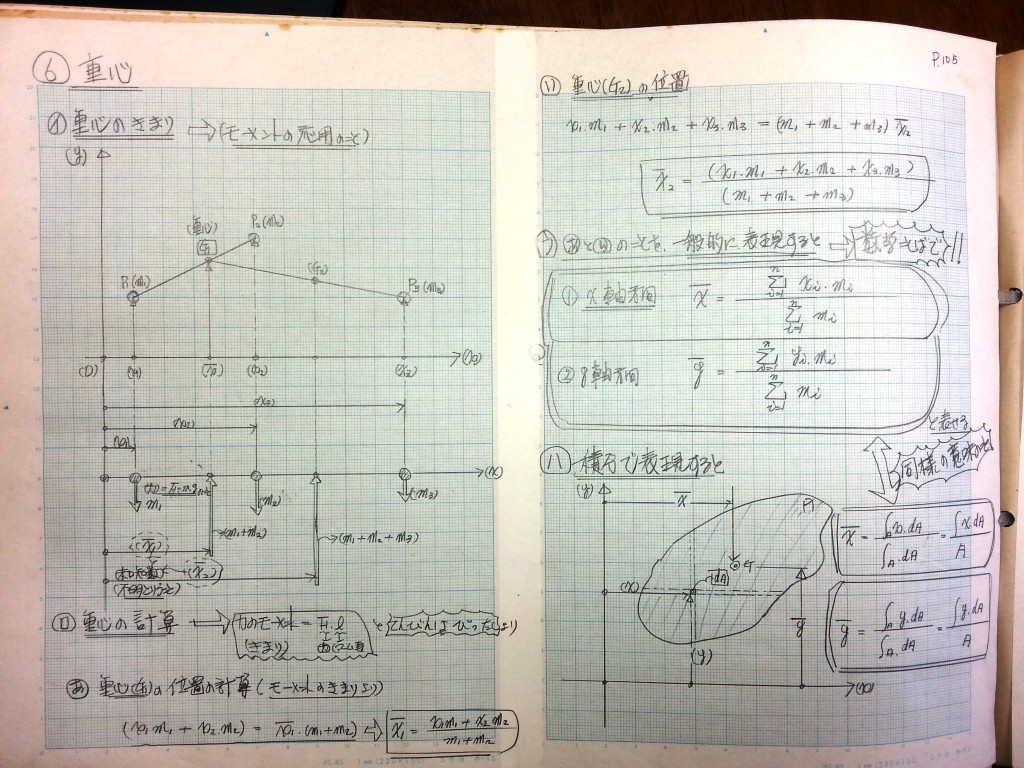 ⑥ 重心
㋑ 重心のきまり ⇒ (モーメントの応用のこと)
(y)
(重心)
G1
P2(m2)
P1(m1)
(G2)
P3(m3)
(0)
(x1)
(x̄1)
(x2)
(x3)
(x)
(x3)
(x2)
(x1)
(x)
力=F=mg
m1
(m2)
(m3)
(m1+m2)
(m1+m2+m3)
(x̄1)
(x̄2)
㋺ 重心の計算 ⇒ 力のモーメント = F.l
(きまり)
てんびんはぴったしより
㋐ 重心(G1)の位置の計算 (モーメントのきまりより)
(x1m1 + x2.m2) = x̄1.(m1+m2) ⇒ x̄1 = x1m1 + x2m2 / m1+m2
P.105
㋑ 重心(G2)の位置
x1.m1 + x2.m2 + x3.m3 = (m1 + m2 + m3) x̄2
x̄2 = (x1.m1 + x2.m2 + x3.m3) / (m1 + m2 + m3)
一般的に表現すると ⇒
① x軸方向 x̄ = Σ(i=1→n) xi.mi / Σ(i=1→n) mi
② y軸方向 ȳ = Σ(i=1→n) yi.mi / Σ(i=1→n) mi
と表せる
同様の意味
㋩ 積分で表現すると
(y)
x̄
(A)
(x)
dA
G
ȳ
(y)
(x)
x̄ = ∫A x.dA / ∫A.dA = ∫x.dA / A
ȳ = ∫A y.dA / ∫A.dA = ∫y.dA / A